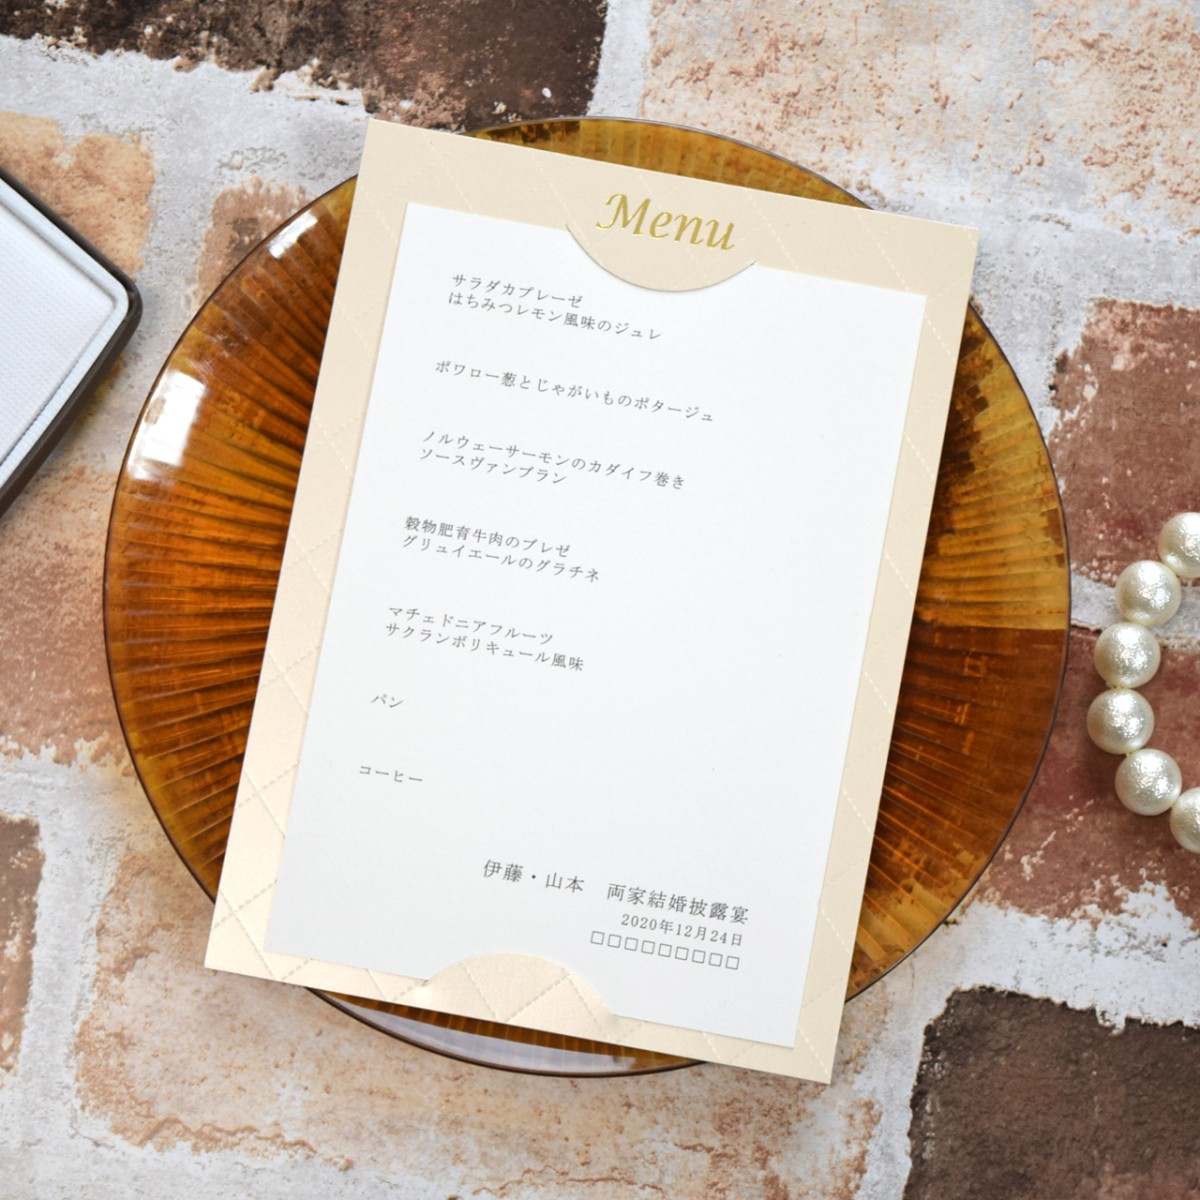 Menu
サラダカプレーゼ
はちみつレモン風味のジュレ
ポワロー葱とじゃがいものポタージュ
ノルウェーサーモンのカダイフ巻き
ソースヴァンブラン
穀物肥育牛肉のブレゼ
グリュイエールのグラチネ
マチェドニアフルーツ
サクランボリキュール風味
パン
コーヒー
伊藤・山本　両家結婚披露宴
2020年12月24日
□□□□□□□□□